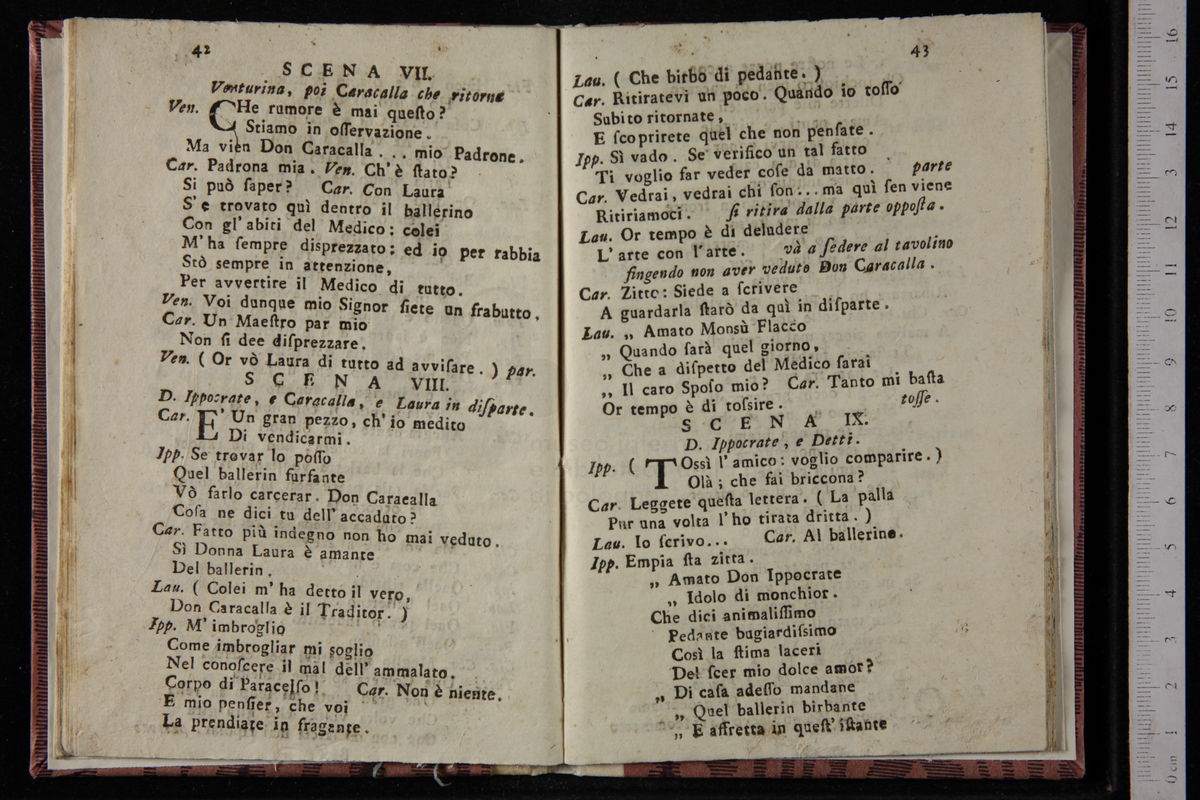 42
SCENA VII.
Venturina, poi Caracalla che ritorna
Ven. CHe rumore è mai queſto?
Stiamo in oſſervazione.
Ma vien Don Caracalla . . . mio Padrone.
Car. Padrona mia. Ven. Ch'è ſtato?
Si può ſaper? Car. Con Laura
S'e trovato quì dentro il ballerino
Con gl'abiti del Medico: colei
M'ha ſempre disprezzato: ed io per rabbia
Stò sempre in attenzione,
Per avvertire il Medico di tutto.
Ven. Voi dunque mio Signor ſiete un frabutto.
Car. Un Maeſtro par mio
Non ſi dee diſprezzare.
Ven. ( Or vò Laura di tutto ad avviſare. ) par.
SCENA VIII.
D. Ippocrate, e Caracalla, e Laura in diſparte.
Car. E' Un gran pezzo, ch'io medito
Di vendicarmi.
Ipp. Se trovar lo poſſo
Quel ballerin furfante
Vò farlo carcerar. Don Caracalla
Coſa ne dici tu dell'accaduto?
Car. Fatto più indegno non ho mai veduto.
Sì Donna Laura è amante
Del ballerin.
Lau. ( Colei m'ha detto il vero,
Don Caracalla è il Traditor. )
Ipp. M'imbroglio
Come imbrogliar mi soglio
Nel conoſcere il mal dell'ammalato.
Corpo di Paracelſo! Car. Non è niente.
E mio penſier, che voi
La prendiate in fragante.
43
Lau. ( Che birbo di pedante. )
Car. Ritiratevi un poco. Quando io toſſo
Subito ritornate,
E ſcoprirete quel che non penſate.
Ipp. Sì vado. Se verifico un tal fatto
Ti voglio far veder coſe da matto. parte
Car. Vedrai, vedrai chi ſon...ma quì ſen viene
Ritiriamoci. ſi ritira dalla parte oppoſta.
Lau. Or tempo è di deludere
L'arte con l'arte. và a ſedere al tavolino
fingendo non aver veduto Don Caracalla.
Car. Zitto: Siede a ſcrivere
A guardarla ſtarò da quì in diſparte.
Lau. „ Amato Monsù Flacco
„ Quando ſarà quel giorno,
„ Che a diſpetto del Medico ſarai
„ Il caro Spoſo mio? Car. Tanto mi baſta
Or tempo è di toſsire. toſſe.
SCENA IX.
D. Ippocrate, e Detti.
Ipp. ( TOssì l'amico: voglio comparire. )
Olà; che fai briccona?
Car. Leggete queſta lettera. ( La palla
Pur una volta l'ho tirata dritta. )
Lau. Io ſcrivo... Car. Al ballerino.
Ipp. Empia ſta zitta.
„ Amato Don Ippocrate
„ Idolo di monchior.
Che dici animaliſſimo
Pedante bugiardiſsimo
Così la ſtima laceri
Del ſcer mio dolce amor?
„ Di caſa adeſſo mandane
„ Quel ballerin birbante
„ E affretta in queſt'iſtante